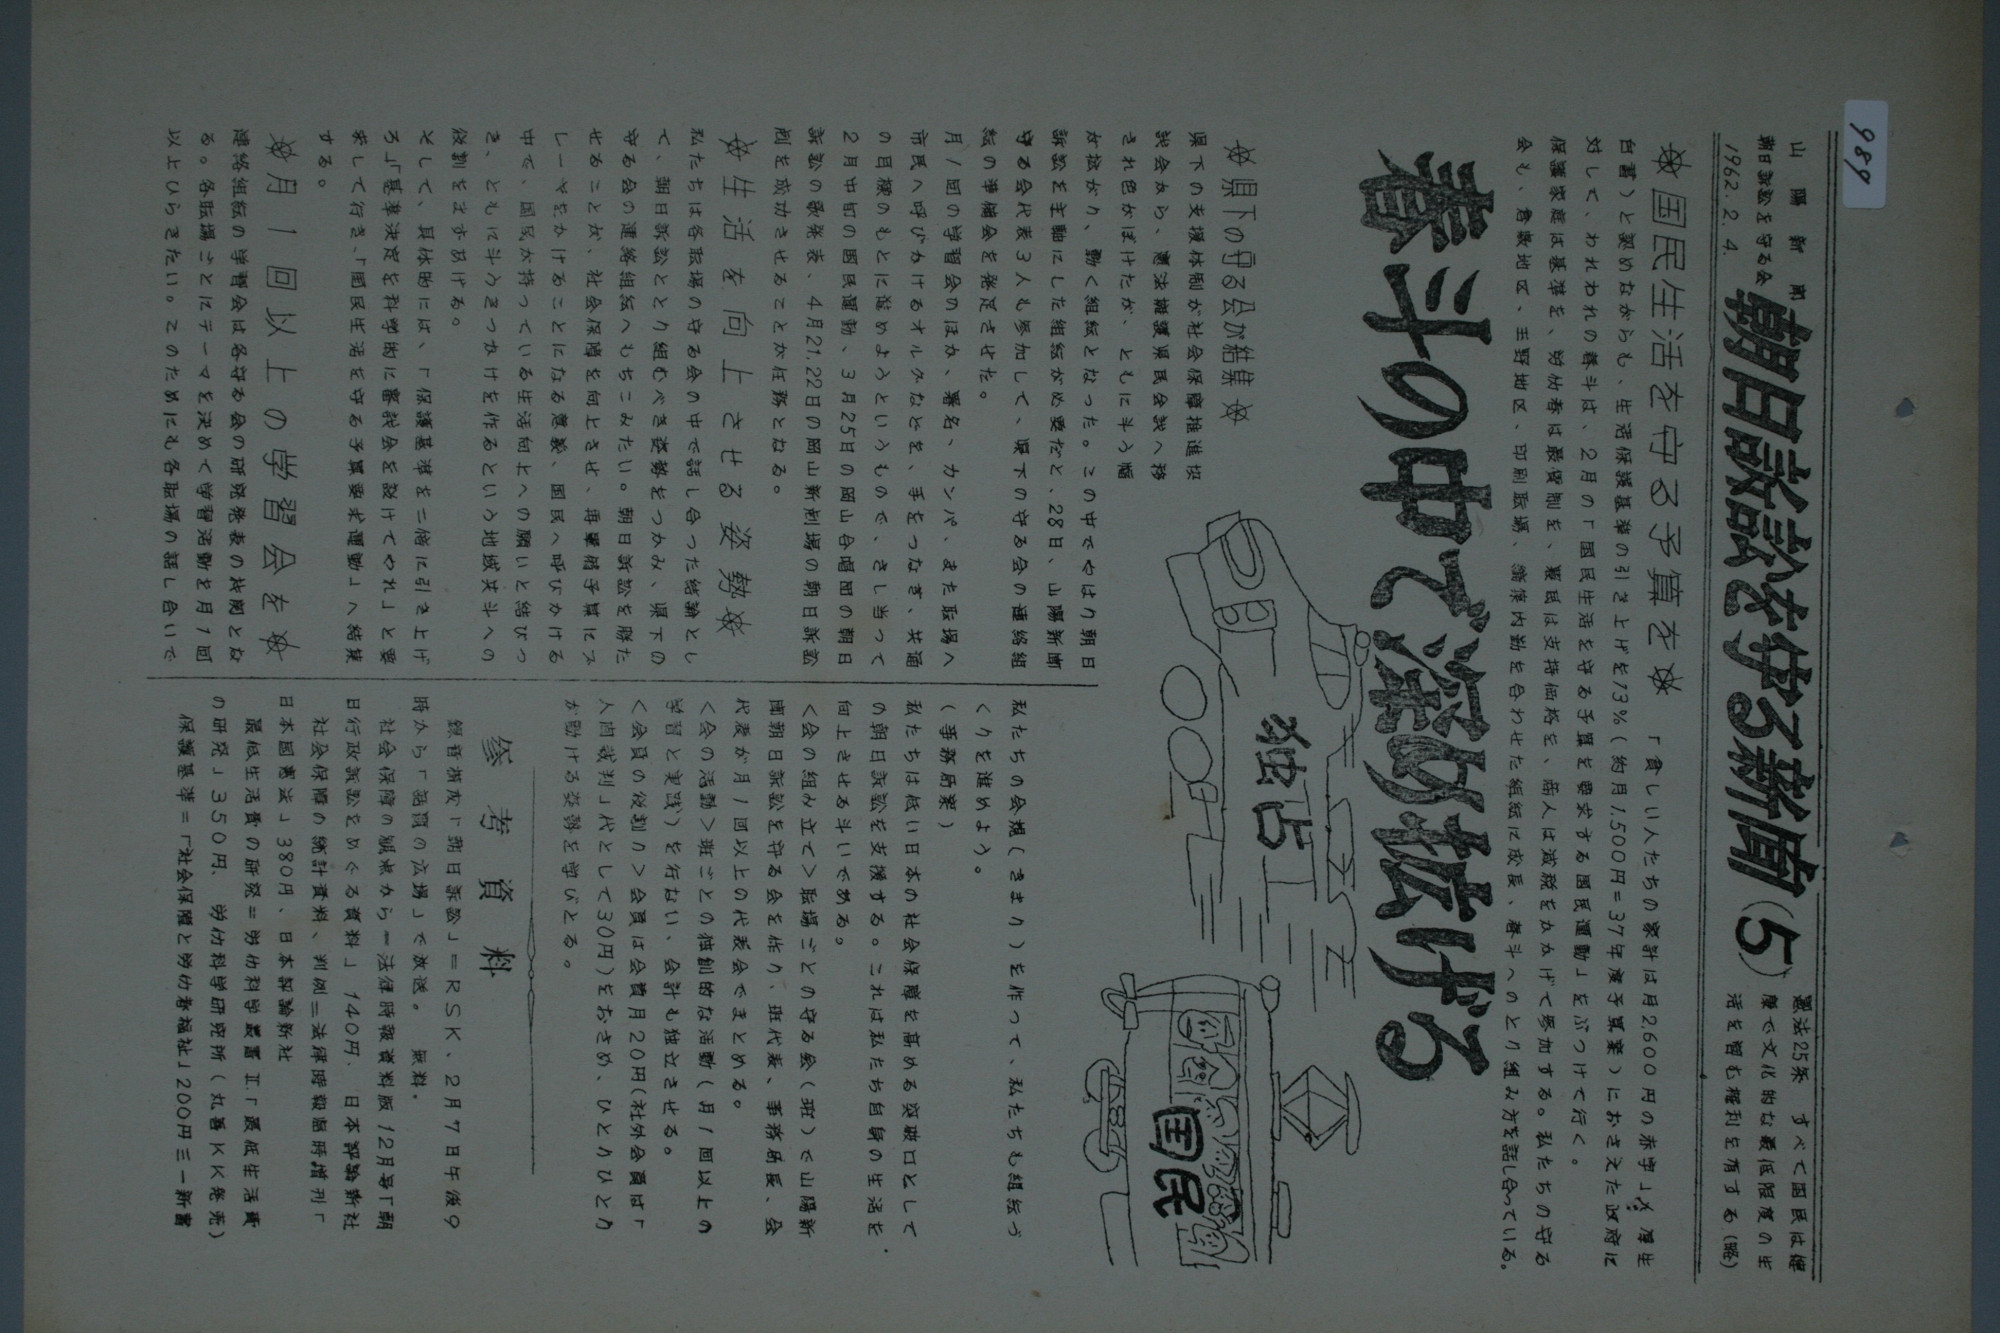 989
山陽新聞
朝日訴訟を守る会
1962.2.4.
朝日訴訟を守る新聞(5)
憲法25条 すべて国民は健
康で文化的な最低限度の生
活を営む権利を有する(略)
国民生活を守る予算を
「貧しい人たちの家計は月2,600円の赤字」(厚生
白書)と認めながらも、生活保護基準の引き上げを13%(約月1,500円=37年度予算案)におさえた政府に
対して、われわれの春斗は、2月の「国民生活を守る予算を要求する国民運動」をぶつけて行く。
保護家庭は基準を、労仂者は最賃制を、農民は支持価格を、商人は減税をかかげて参加する。私たちの守る
会も、倉敷地区、玉野地区、印刷職場、編集内勤を合わせた組織に成長、春斗へのとり組み方を話し合っている。
春斗の中で深め拡げる
県下の守る会が結集
県下の支援体制が社会保障推進協
議会から、憲法擁護県民会議へ移
され色がぼけたが、ともに斗う幅
が拡がり、動く組織となった。この中でやはり朝日
訴訟を主軸にした組織が必要だと、28日、山陽新聞
守る会代表3人も参加して、県下の守る会の連絡組
織の準備会を発足させた。
月1回の学習会のほか、署名、カンパ、また職場へ
市民へ呼びかけるオルグなどを、手をつなぎ、共通
の目標のもとに進めようというもので、さし当って
2月中旬の国民運動、3月25日の岡山合唱団の朝日
訴訟の歌発表、4月21,22日の岡山新劇場の朝日訴訟
劇を成功させることが任務となる。
生活を向上させる姿勢
私たちは各職場の守る会の中で話し合った結論とし
て、朝日訴訟ととり組むべき姿勢をつかみ、県下の
守る会の連絡組織へもちこみたい。朝日訴訟を勝た
せることが、社会保障を向上させ、再軍備予算にブ
レーキをかけることになる意義、国民へ呼びかける
中で、国民が持っている生活向上への願いと結びつ
き、ともに斗うきっかけを作るという地域共斗への
役割をまずあげる。
そして、具体的には、「保護基準を二倍に引き上げ
ろ」「基準決定を科学的に審議会を設けてやれ」と要
求して行き、「国民生活を守る予算要求運動」へ結集
する。
月1回以上の学習会を
連絡組織の学習会は各守る会の研究発表の機関とな
る。各職場ごとにテーマを決めて学習活動を月1回
以上ひらきたい。このためにも各職場の話し合いで
独占
国民
私たちの会規(きまり)を作って、私たちも組織づ
くりを進めよう。
(事務局案)
私たちは低い日本の社会保障を高める突破口として
の朝日訴訟を支援する。これは私たち自身の生活を
向上させる斗いである。
<会の組み立て>職場ごとの守る会(班)で山陽新
聞朝日訴訟を守る会を作り、班代表、事務局長、会
代表が月1回以上の代表会でまとめる。
<会の活動>班ごとの独創的な活動(月1回以上の
学習と実践)を行ない、会計も独立させる。
<会員の役割り>会員は会費月20円(社外会員は「
人間裁判」代として30円)をおさめ、ひとりひとり
が動ける姿勢を学びとる。
参考資料
録音構成「朝日訴訟」=RSK、2月7日午後9
時から「話題の広場」で放送。 無料.
社会保障の観点から=法律時報資料版12月号「朝
日行政訴訟をめぐる資料」140円. 日本評論新社
社会保障の統計資料、判例=法律時報臨時増刊「
日本国憲法」380円、日本評論新社
最低生活費の研究=労仂科学叢書Ⅱ「最低生活費
の研究」350円. 労仂科学研究所(丸善KK発売)
保護基準=「社会保障と労仂者福祉」200円三一新書